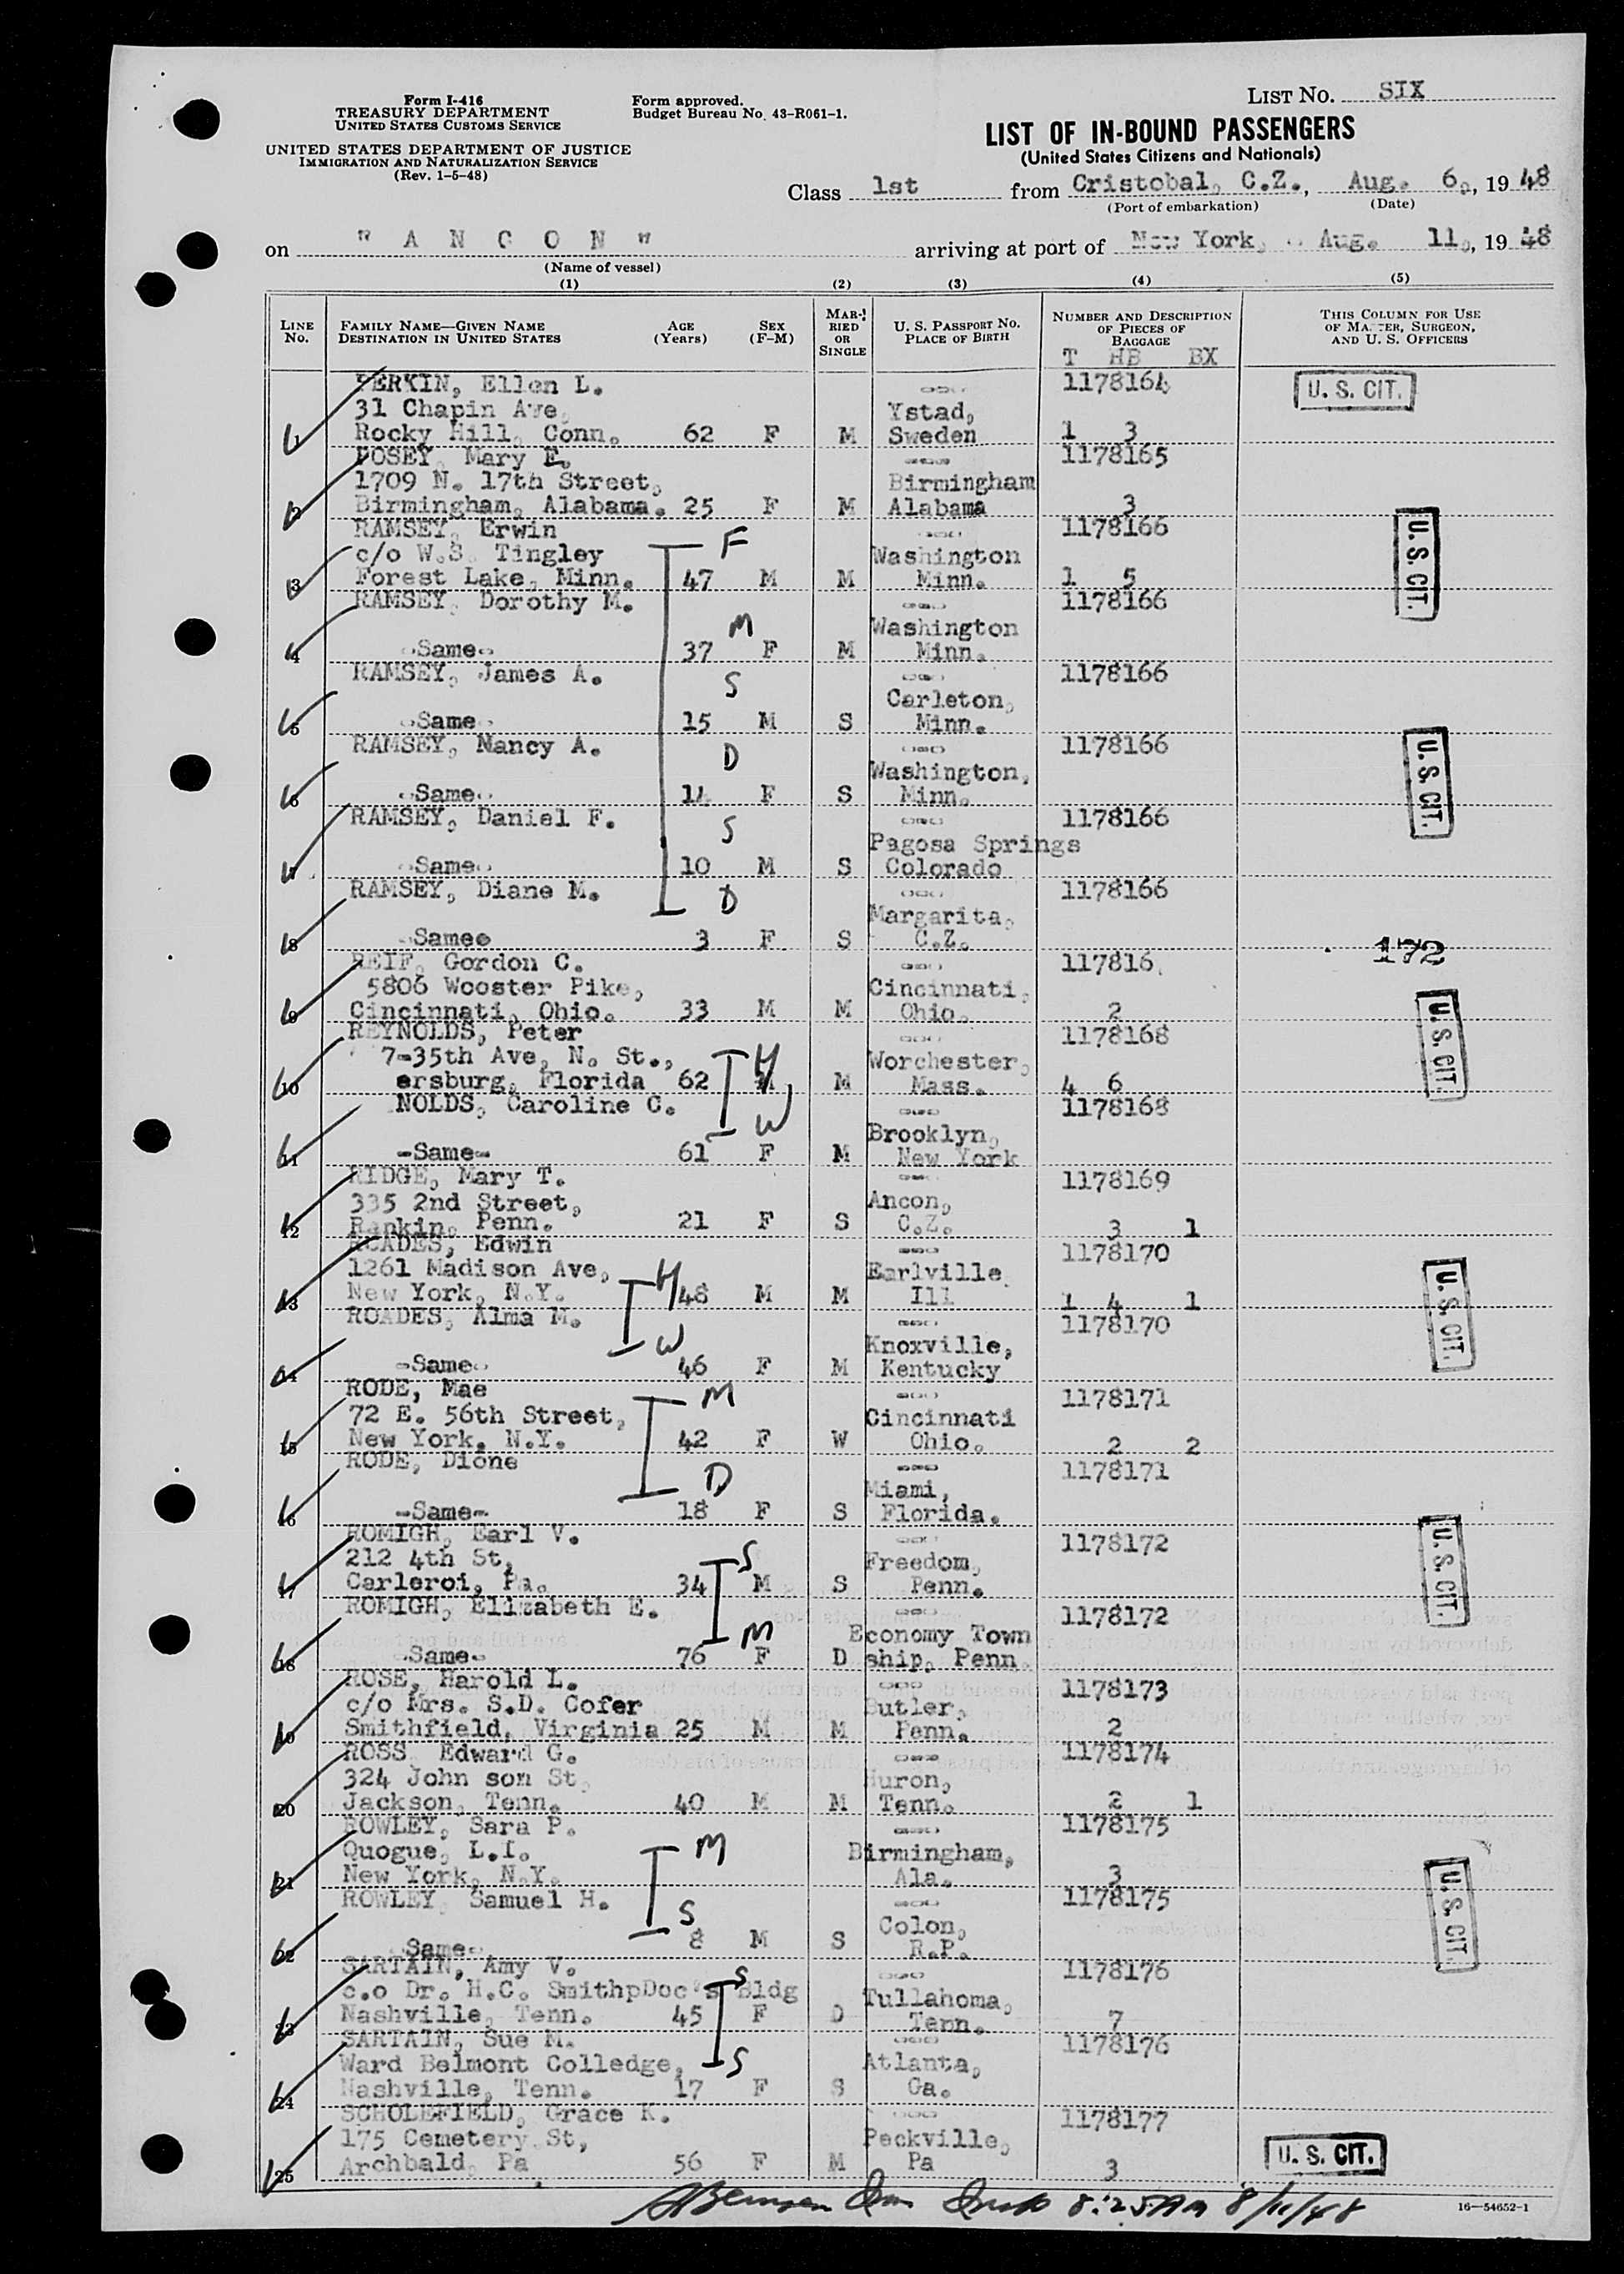 Form I-416
TREASURY DEPARTMENT
UNITED STATES CUSTOMS SERVICE
UNITED STATES DEPARTMENT OF JUSTICE
IMMIGRATION AND NATURALIZATION SERVICE
(Rev. 1-5-48)
Form approved.
Budget Bureau No. 43-R061-1.
LIST NO. SIX
LIST OF IN-BOUND PASSENGERS
(United States Citizens and Nationals)
Class 1st from Cristobal, C.Z., Aug. 6, 1948
(Port of embarkation) (Date)
on "ANCON" arriving at port of New York, Aug. 11, 1948
(Name of vessel)
(1) (2) (3) (4) (5)
LINE No. FAMILY NAME—GIVEN NAME DESTINATION IN UNITED STATES AGE (Years) SEX (F-M) MARRIED OR SINGLE U. S. PASSPORT NO. PLACE OF BIRTH NUMBER AND DESCRIPTION OF PIECES OF BAGGAGE THIS COLUMN FOR USE OF MASTER, SURGEON, AND U. S. OFFICERS
T HB BX
PERKIN, Ellen L. --- 1178164 U. S. CIT.
31 Chapin Ave, Ystad,
1 Rocky Hill, Conn. 62 F M Sweden 1 3
POSEY, Mary E. --- 1178165
1709 N. 17th Street, Birmingham
2 Birmingham, Alabama. 25 F M Alabama 3
RAMSEY, Erwin F --- 1178166 U. S. CIT.
c/o W.S. Tingley Washington
3 Forest Lake, Minn. 47 M M Minn. 1 5
RAMSEY, Dorothy M. --- 1178166
M Washington
4 -Same- 37 F M Minn.
RAMSEY, James A. S --- 1178166
Carleton,
5 -Same- 15 M S Minn.
RAMSEY, Nancy A. D --- 1178166 U. S. CIT.
Washington,
6 -Same- 14 F S Minn.
RAMSEY, Daniel F. S --- 1178166
Pagosa Springs
7 -Same- 10 M S Colorado
RAMSEY, Diane M. D --- 1178166
Margarita,
8 -Same- 3 F S C.Z. 172
REIF, Gordon C. --- 117816
5806 Wooster Pike, Cincinnati, U. S. CIT.
9 Cincinnati, Ohio. 33 M M Ohio. 2
REYNOLDS, Peter --- 1178168
7-35th Ave, N. St., H Worchester,
10 ersburg, Florida 62 M M Mass. 4 6
NOLDS, Caroline C. W --- 1178168
Brooklyn,
11 -Same- 61 F M New York
RIDGE, Mary T. --- 1178169
335 2nd Street, Ancon,
12 Rankin, Penn. 21 F S C.Z. 3 1
ROADES, Edwin --- 1178170
1261 Madison Ave, H Earlville U. S. CIT.
13 New York, N.Y. 48 M M Ill 1 4 1
ROADES, Alma M. W --- 1178170
Knoxville,
14 -Same- 46 F M Kentucky
RODE, Mae M --- 1178171
72 E. 56th Street, Cincinnati
15 New York, N.Y. 42 F W Ohio. 2 2
RODE, Dione D --- 1178171
Miami,
16 -Same- 18 F S Florida.
ROMIGH, Earl V. S --- 1178172 U. S. CIT.
212 4th St, Freedom,
17 Carleroi, Pa. 34 M S Penn.
ROMIGH, Elizabeth E. M --- 1178172
Economy Town
18 -Same- 76 F D ship, Penn
ROSE, Harold L. --- 1178173
c/o Mrs. S.D. Cofer Butler,
19 Smithfield, Virginia 25 M M Penn. 2
ROSS Edward G. --- 1178174
324 John son St, Huron,
20 Jackson, Tenn. 40 M M Tenn. 2 1
ROWLEY, Sara P. --- 1178175
Quogue, L.I. M Birmingham,
21 New York, N.Y. Ala. 3
ROWLEY, Samuel H. S --- 1178175 U. S. CIT.
Colon,
22 Same- 8 M S R.P.
SARTAIN, Amy V. S --- 1178176
c.o Dr. H.C. SmithpDoc's Bldg Tullahoma,
23 Nashville, Tenn. 45 F D Tenn. 7
SARTAIN, Sue M. --- 1178176
Ward Belmont Colledge, S Atlanta,
24 Nashville, Tenn. 17 F S Ga.
SCHOLEFIELD, Grace K. --- 1178177
175 Cemetery St, Peckville,
25 Archbald, Pa 56 F M Pa 3 U. S. CIT.
8:25 AM 8/11/48
16—54652-1